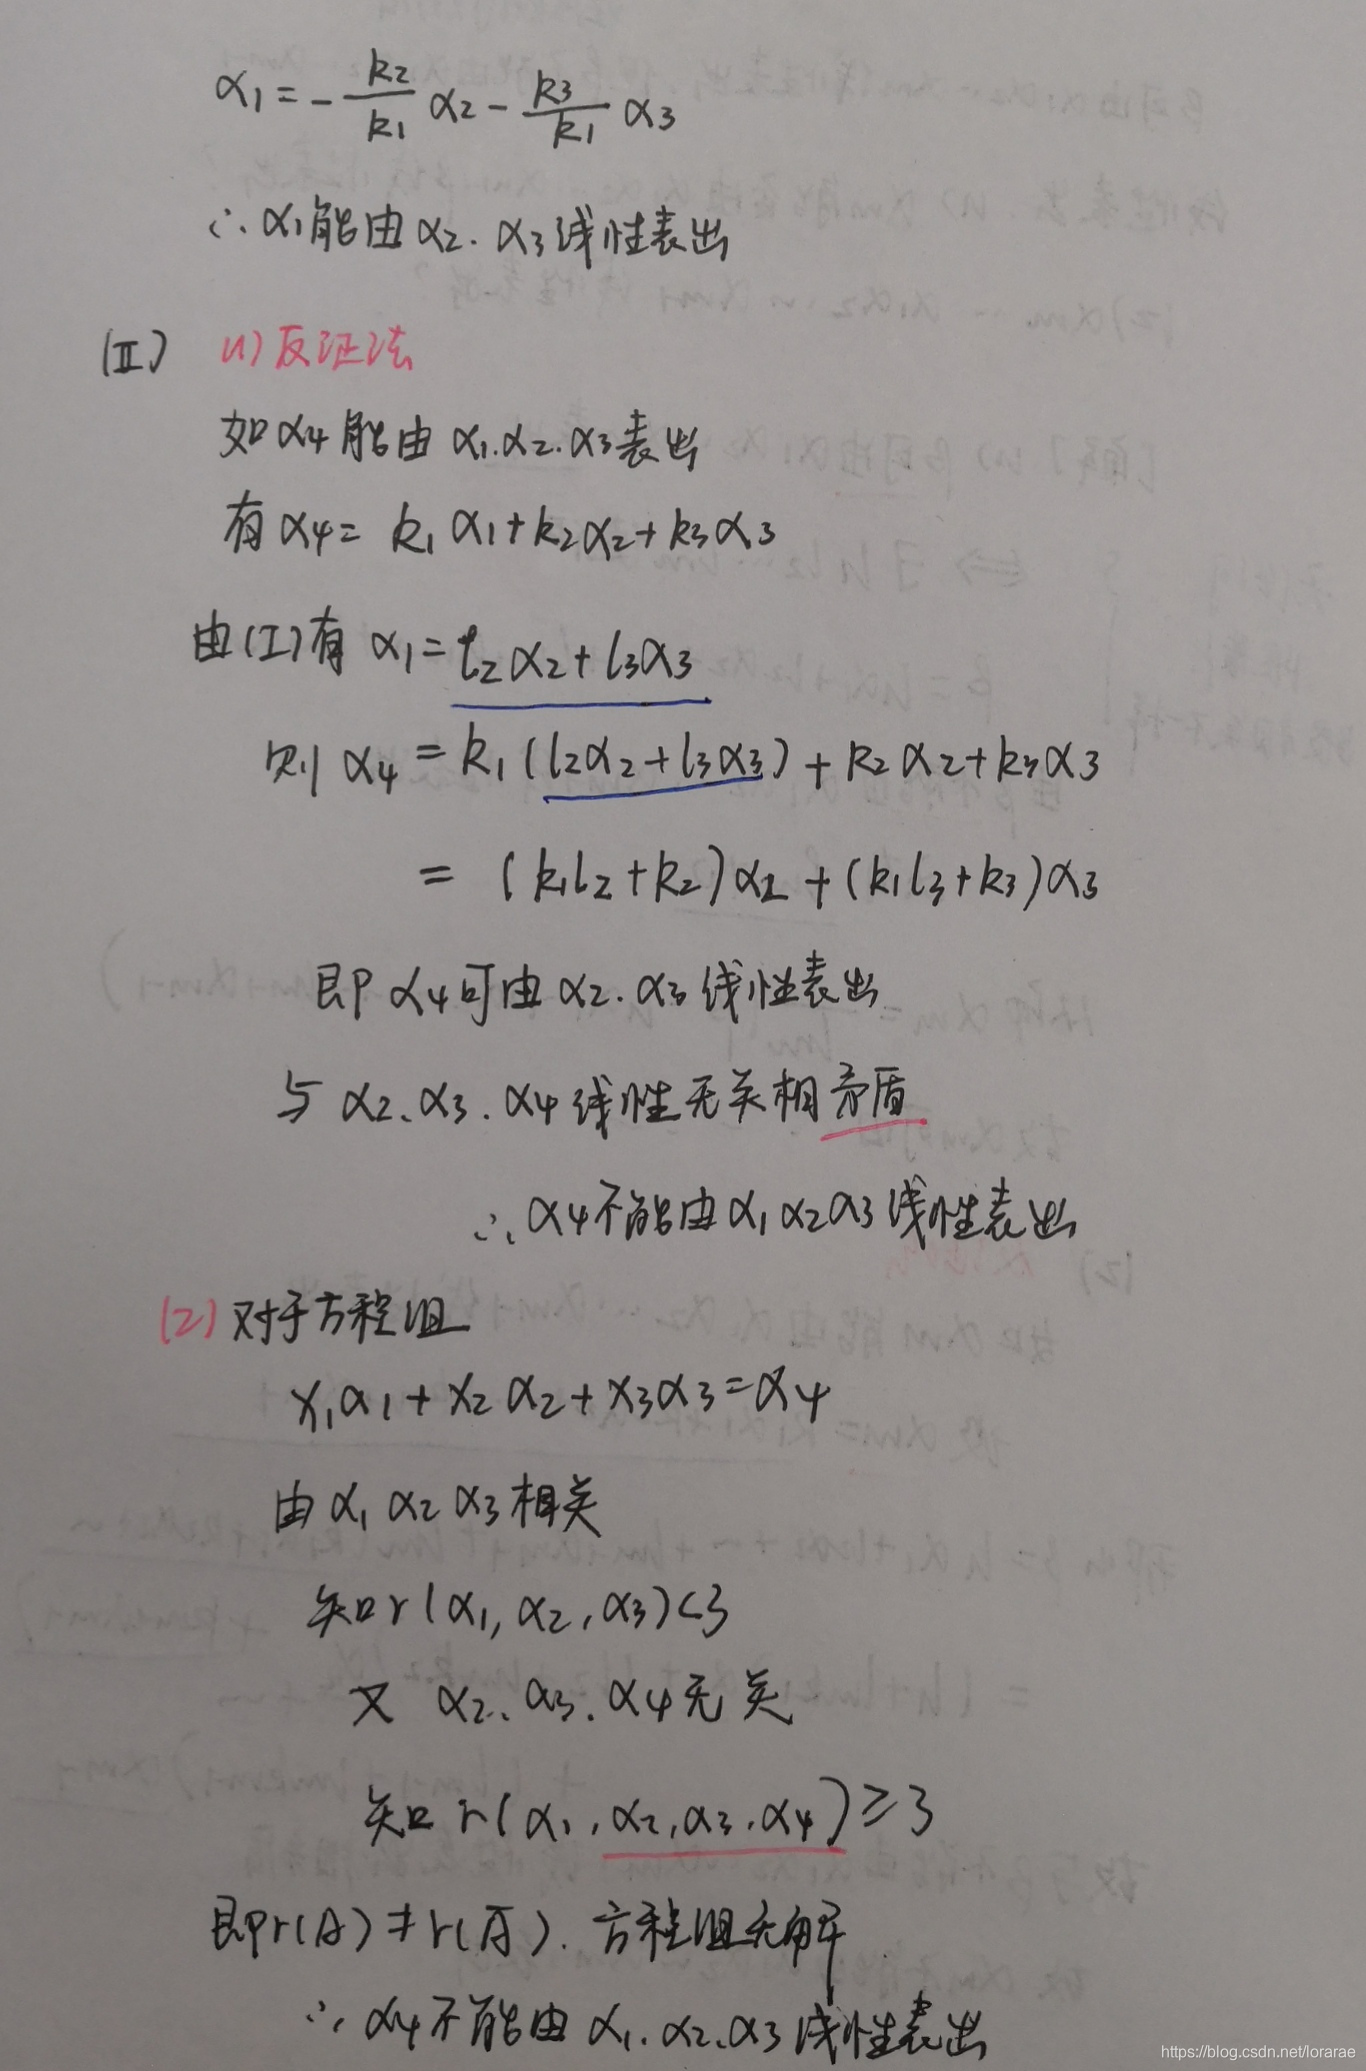 α1 = - k2/k1 α2 - k3/k1 α3
∴ α1能由α2. α3线性表出
(Ⅱ) (1)反证法
如α4能由α1.α2.α3表出
有α4 = k1α1+k2α2+k3α3
由(I)有 α1 = l2α2+l3α3
则α4 = k1(l2α2+l3α3)+k2α2+k3α3
= (k1l2+k2)α2+(k1l3+k3)α3
即α4可由α2.α3线性表出
与α2、α3.α4线性无关相矛盾
∴ α4不能由α1α2α3线性表出
(2)对于方程组
x1α1+x2α2+x3α3=α4
由α1α2α3相关
知r(α1,α2,α3)<3
又 α2、α3.α4无关
知r(α1,α2,α3.α4)≥3
即r(A)≠r(Ā).方程组无解
∴ α4不能由α1.α2.α3线性表出
https://blog.csdn.net/lorarae